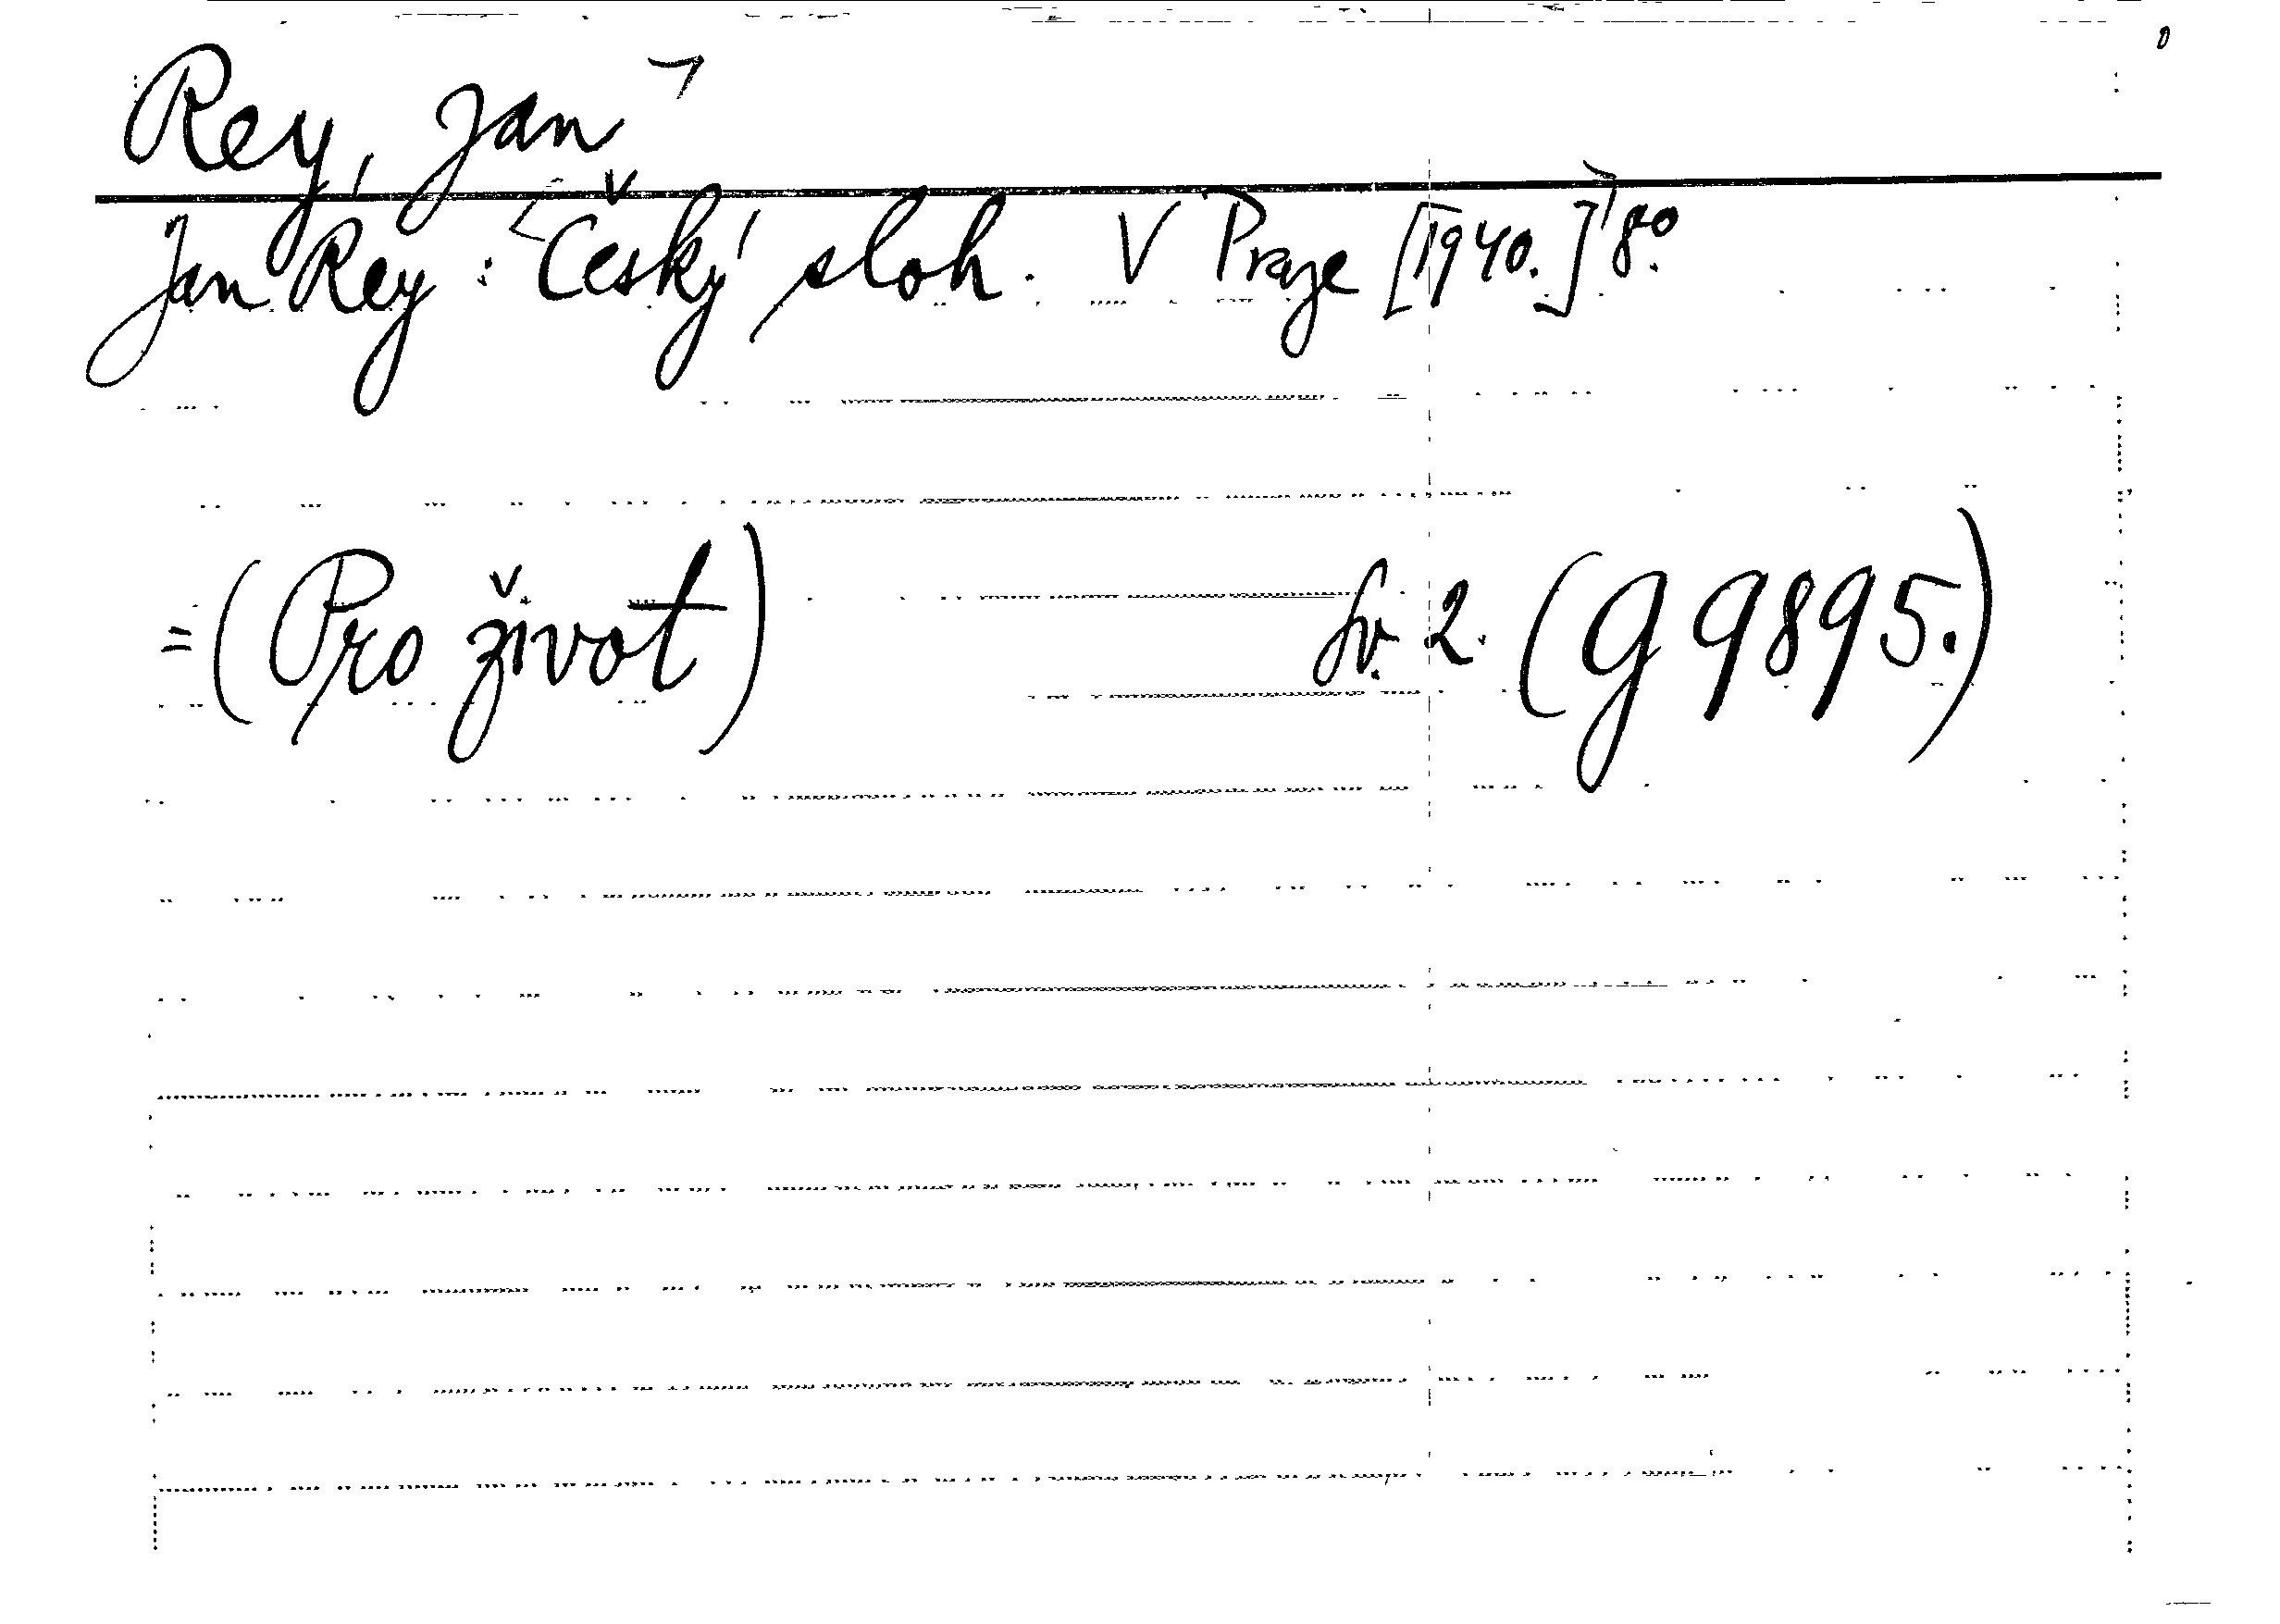 Rey, Jan
Jan Rey: Český sloh. V Praze [1940.] 8º.
=(Pro život) Sv. 2. (G 9895.)